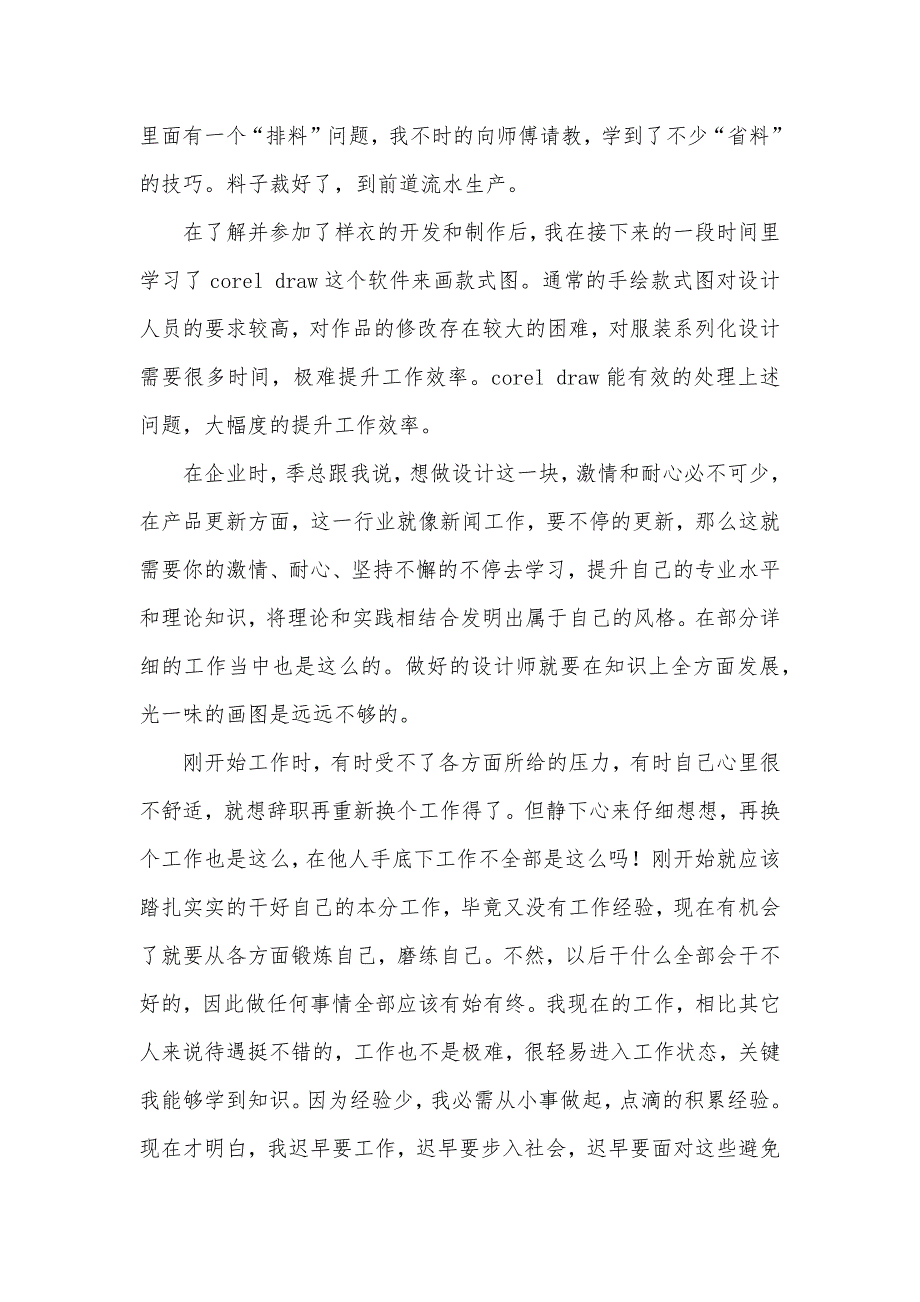 里面有一个“排料”问题，我不时的向师傅请教，学到了不少“省料”
的技巧。料子裁好了，到前道流水生产。
在了解并参加了样衣的开发和制作后，我在接下来的一段时间里
学习了 corel draw 这个软件来画款式图。通常的手绘款式图对设计
人员的要求较高，对作品的修改存在较大的困难，对服装系列化设计
需要很多时间，极难提升工作效率。corel draw 能有效的处理上述
问题，大幅度的提升工作效率。
在企业时，季总跟我说，想做设计这一块，激情和耐心必不可少，
在产品更新方面，这一行业就像新闻工作，要不停的更新，那么这就
需要你的激情、耐心、坚持不懈的不停去学习，提升自己的专业水平
和理论知识，将理论和实践相结合发明出属于自己的风格。在部分详
细的工作当中也是这么的。做好的设计师就要在知识上全方面发展，
光一味的画图是远远不够的。
刚开始工作时，有时受不了各方面所给的压力，有时自己心里很
不舒适，就想辞职再重新换个工作得了。但静下心来仔细想想，再换
个工作也是这么，在他人手底下工作不全部是这么吗！刚开始就应该
踏扎实实的干好自己的本分工作，毕竟又没有工作经验，现在有机会
了就要从各方面锻炼自己，磨练自己。不然，以后干什么全部会干不
好的，因此做任何事情全部应该有始有终。我现在的工作，相比其它
人来说待遇挺不错的，工作也不是极难，很轻易进入工作状态，关键
我能够学到知识。因为经验少，我必需从小事做起，点滴的积累经验。
现在才明白，我迟早要工作，迟早要步入社会，迟早要面对这些避免